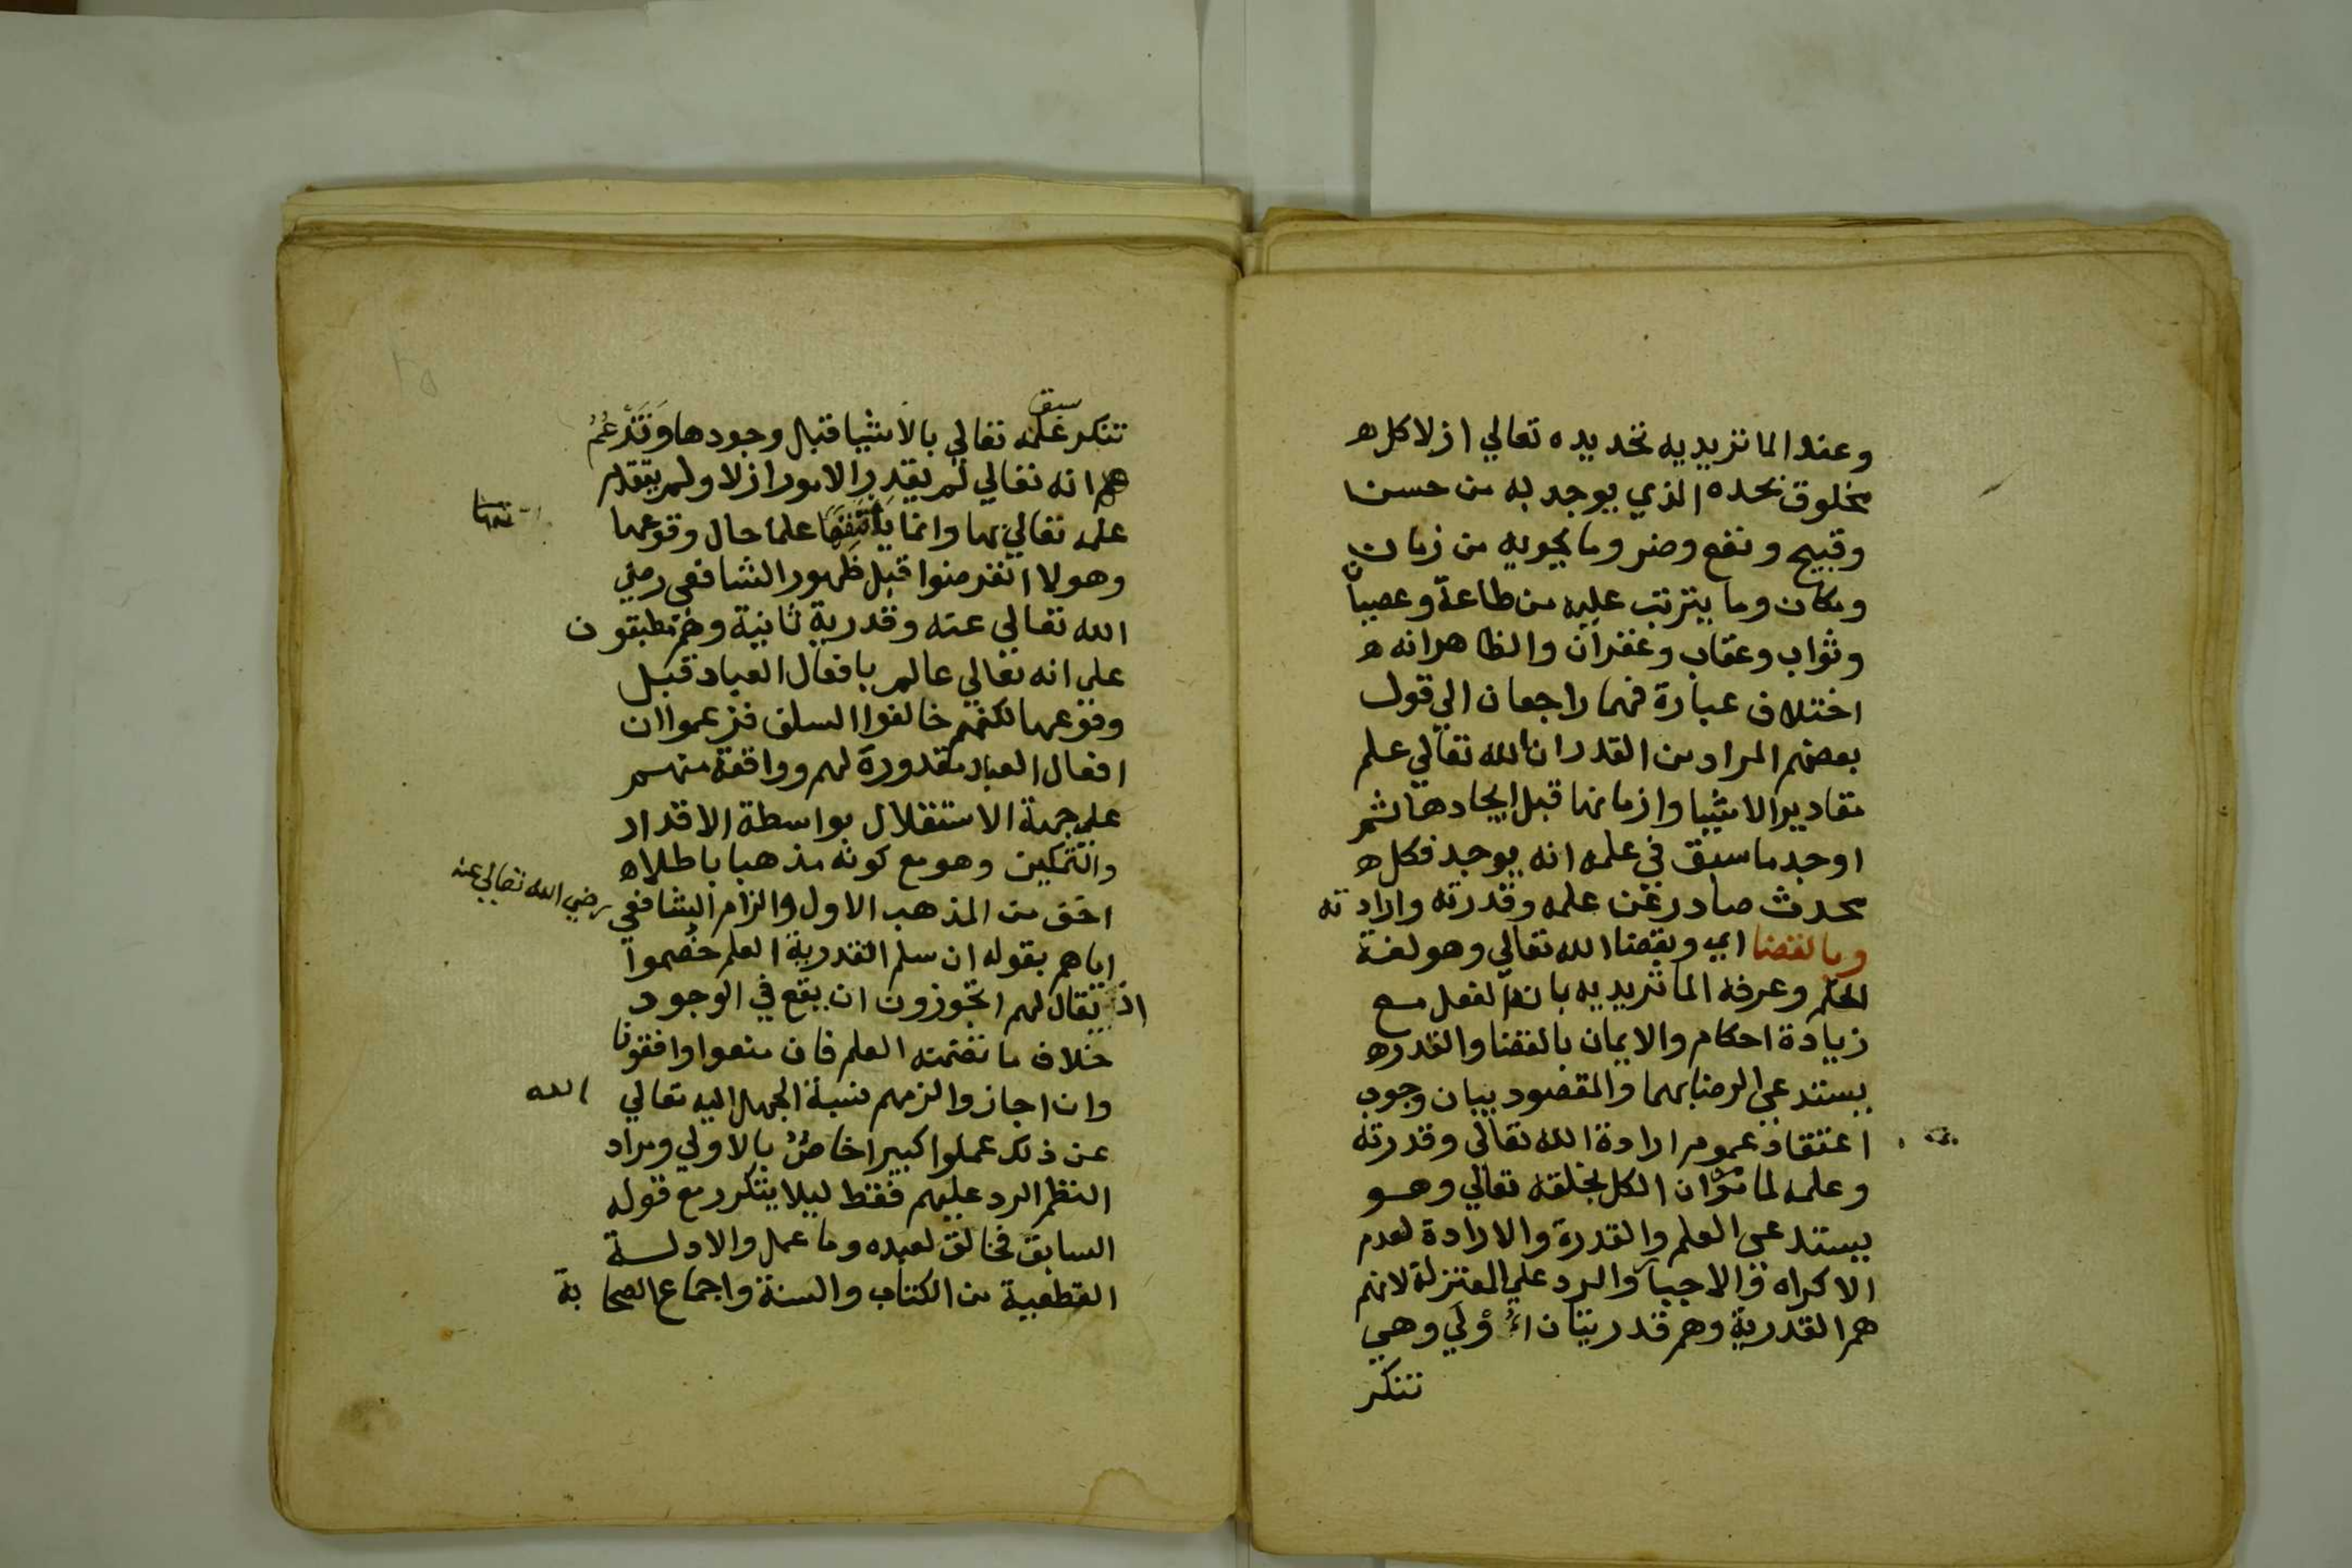 وعند الماتريديه تحديده تعالي ازلا كل ه
مخلوق بحده الذي يوجد به من حسن
وقبيح ونفع وضر وما يحويه من زمان
ومكان وما يترتب عليه من طاعة وعصيان
وثواب وعقاب وغفران والظاهر انه ه
اختلاف عبارة فهما راجعان الي قول
بعضهم المراد من القدر ان الله تعالي علم
مقادير الاشيا وازمانها قبل ايجادها ثم
اوجد ما سبق في علمه انه يوجد فكل ه
محدث صادر عن علمه وقدرته وارادته
وبالقضا اي وبقضا الله تعالي وهو لغة
الحكم وعرفه الماتريديه بانه الفعل مع
زيادة احكام والايمان بالقضا والقدر ه
يستدعي الرضا بهما والمقصود بيان وجوب
اعتقاد عموم ارادة الله تعالى وقدرته
وعلمه لما مر ان الكل بخلقه تعالي وهو
يستدعي العلم والقدرة والارادة لعدم
الاكراه والاجبار والرد علي المعتزلة لانهم
هم القدرية وهم قدريتان اءولي وهي
تنكر
تنكر سبق علمه تعالي بالاشيا قبل وجودها وتزعم
هم انه تعالي لم يقدر الامور ازلا ولم يتقدم
علمه تعالي بها وانما يأتنفها علما حال وقوعها
وهولا انقرضوا قبل ظهور الشافعي رضي
الله تعالي عنه وقدرية ثانية وهم مطبقون
علي انه تعالي عالم بافعال العباد قبل
وقوعها لكنهم خالفوا السلف فزعموا ان
افعال العباد مقدورة لهم وواقعة منهم
علي جهة الاستقلال بواسطة الاقدار
والتمكين وهو مع كونه مذهبا باطلا ه
اخف من المذهب الاول والزام الشافعي رضي الله تعالي عنه
اياهم بقوله ان سلم القدرية العلم خصموا
اذ يقال لهم اتجوزون ان يقع في الوجود
خلاف ما تضمنه العلم فان منعوا وافقونا
وان اجازوا لزمهم نسبة الجهل اليه تعالي الله
عن ذلك علوا كبيرا خاص بالاولي ومراد
النظم الرد عليهم فقط ليلا يتكرر مع قوله
السابق فخالق لعبده وما عمل والادلة
القطعية من الكتاب والسنة واجماع الصحابة